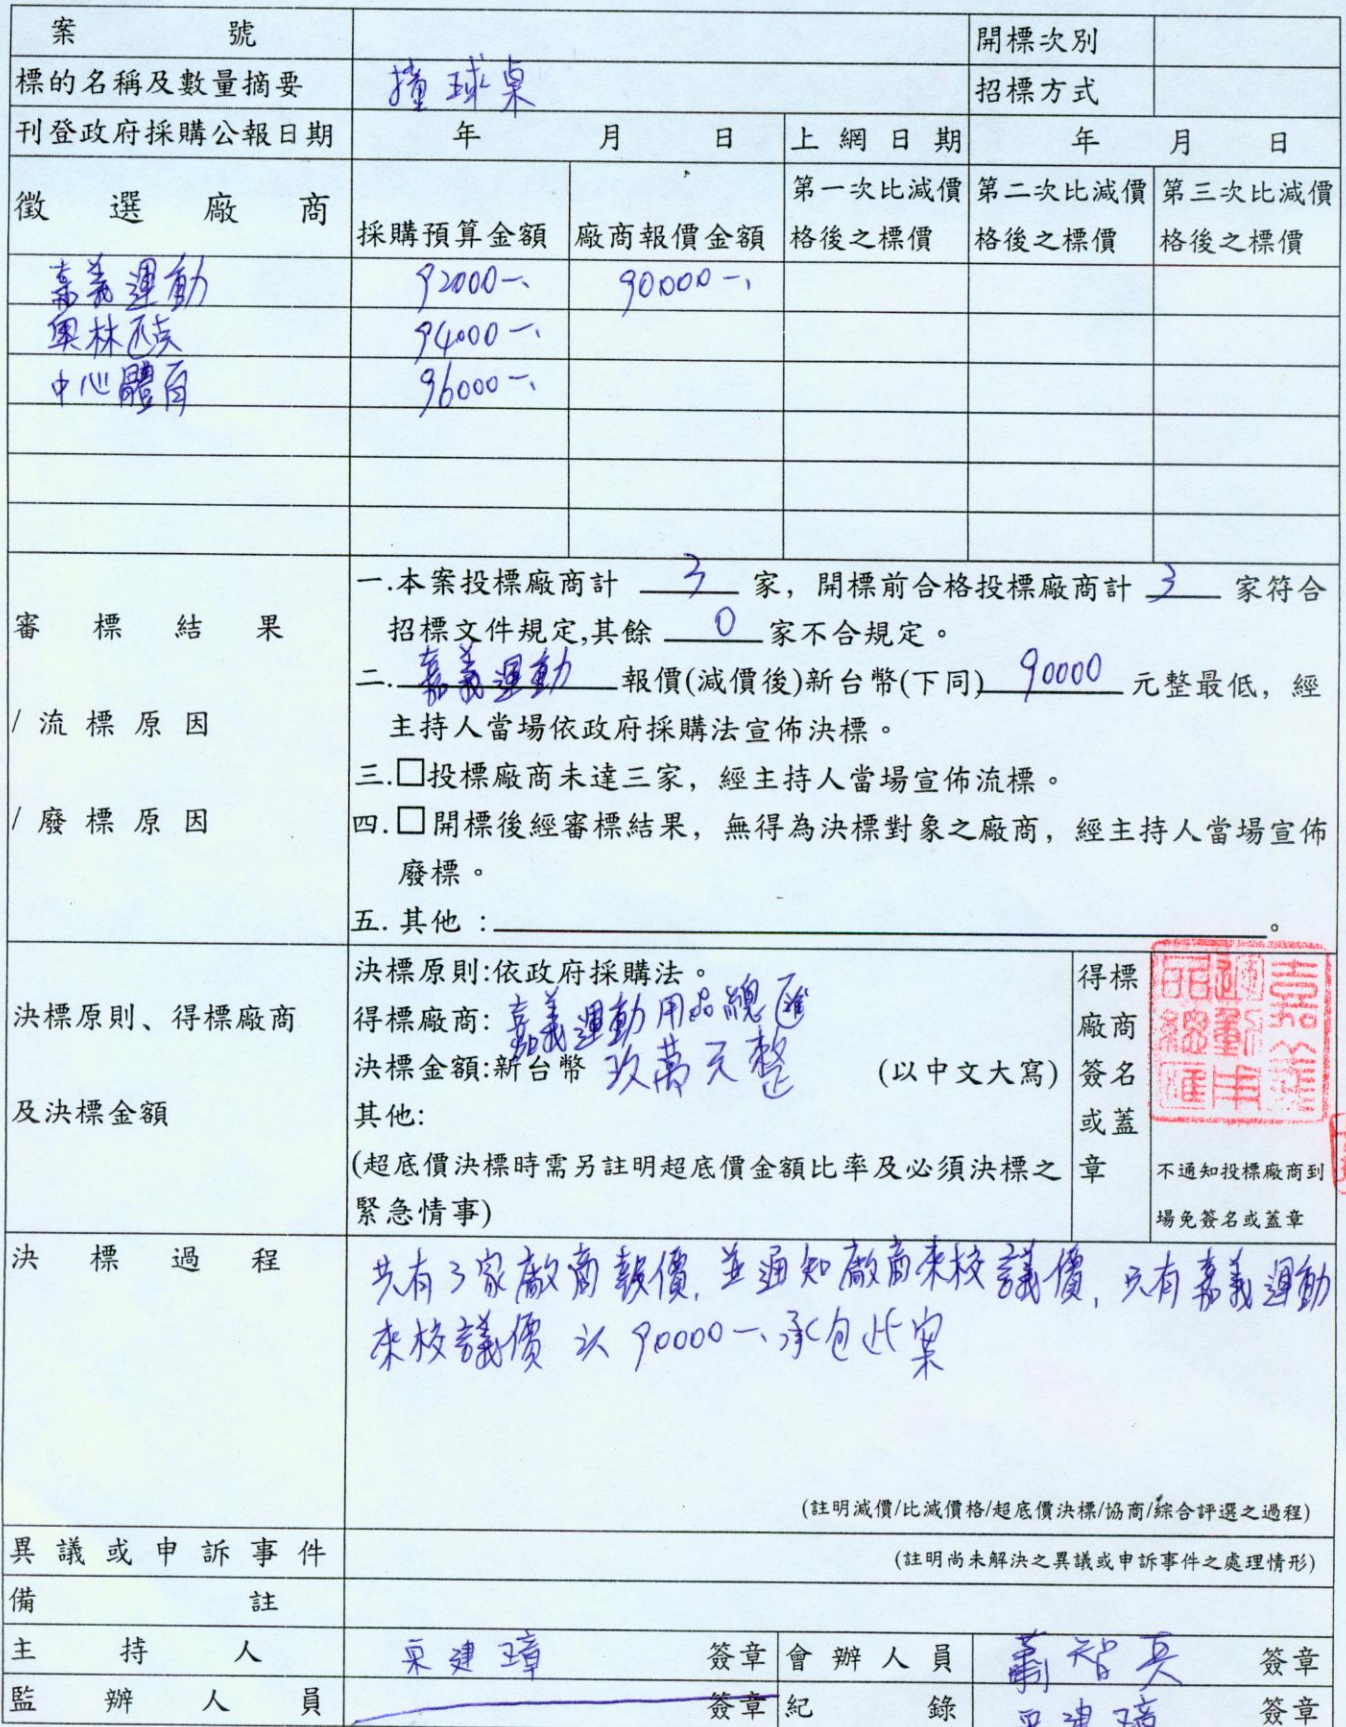 案號 開標次別
標的名稱及數量摘要 撞球桌 招標方式
刊登政府採購公報日期 年 月 日 上網日期 年 月 日
徵選廠商 採購預算金額 廠商報價金額 第一次比減價格後之標價 第二次比減價格後之標價 第三次比減價格後之標價
嘉義運動 92000一、 90000一、
奧林匹克 94000一、
中心體育 96000一、
審標結果
/流標原因
/廢標原因
一.本案投標廠商計 3 家，開標前合格投標廠商計 3 家符合
招標文件規定,其餘 0 家不合規定。
二.嘉義運動 報價(減價後)新台幣(下同) 90000 元整最低，經
主持人當場依政府採購法宣佈決標。
三.□投標廠商未達三家，經主持人當場宣佈流標。
四.□開標後經審標結果，無得為決標對象之廠商，經主持人當場宣佈
廢標。
五.其他：。
決標原則、得標廠商
及決標金額
決標原則:依政府採購法。
得標廠商:嘉義運動用品總匯
決標金額:新台幣 玖萬元整 (以中文大寫)
其他:
(超底價決標時需另註明超底價金額比率及必須決標之
緊急情事)
得標
廠商
簽名
或蓋
章
嘉義
運動用
品總匯
不通知投標廠商到
場免簽名或蓋章
決標過程
共有3家廠商報價，並通知廠商來校議價，只有嘉義運動
來校議價 以90000一、承包此案
(註明減價/比減價格/超底價決標/協商/綜合評選之過程)
異議或申訴事件 (註明尚未解決之異議或申訴事件之處理情形)
備註
主持人 建璋 簽章 會辦人員 簽章
監辦人員 簽章 紀錄 建璋 簽章